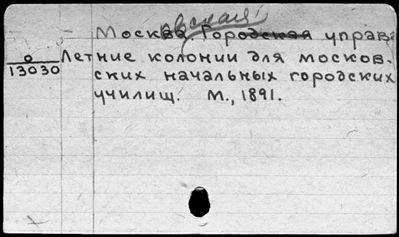 овская
Москва. Городская управ.
0
13030
Летние колонии для москов-
ских начальных городских
училищ. М., 1891.